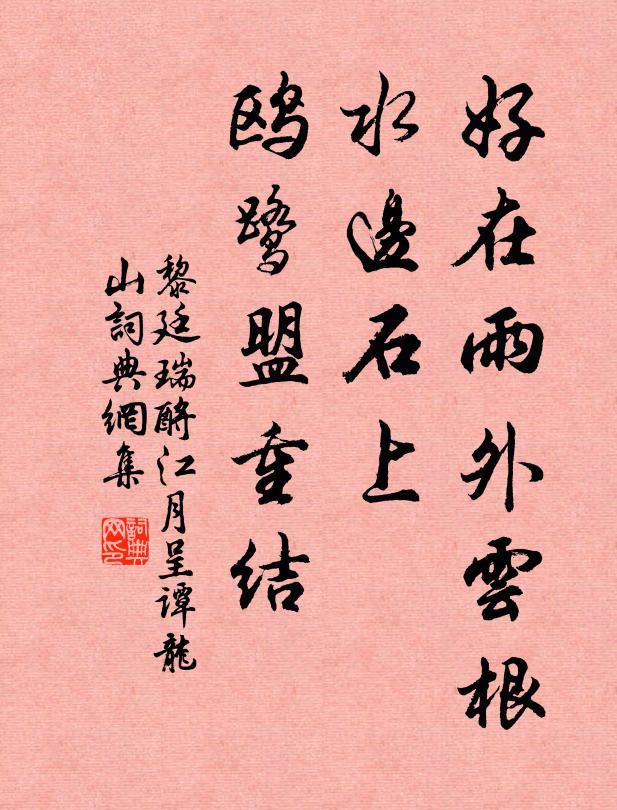 好在雨外雲根
水邊石上
鸥鹭盟重结
黎廷瑞酹江月呈谭龍
山詞典網集
詞典网印